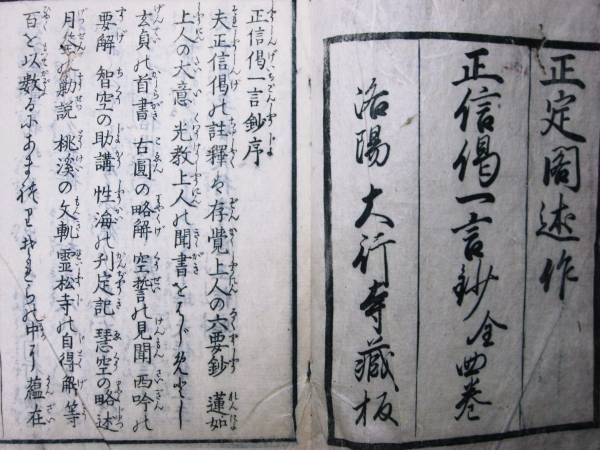 正定閣述作
正信偈一言鈔 全四巻
洛陽 大行寺藏板
正信偈一言鈔序
夫正信偈の註釋ハ存覺上人の六要鈔 蓮如
上人の大意 光教上人の聞書をはじめとし
玄貞の首書 古圓の略解 空誓の見聞 西吟の
要解 智空の助講 性海の刊定記 慧空の略述
月筌の勸説 桃溪の文軌 霊松寺の自得解等
百を以数るにあまれり 其これらの中に 蘊在